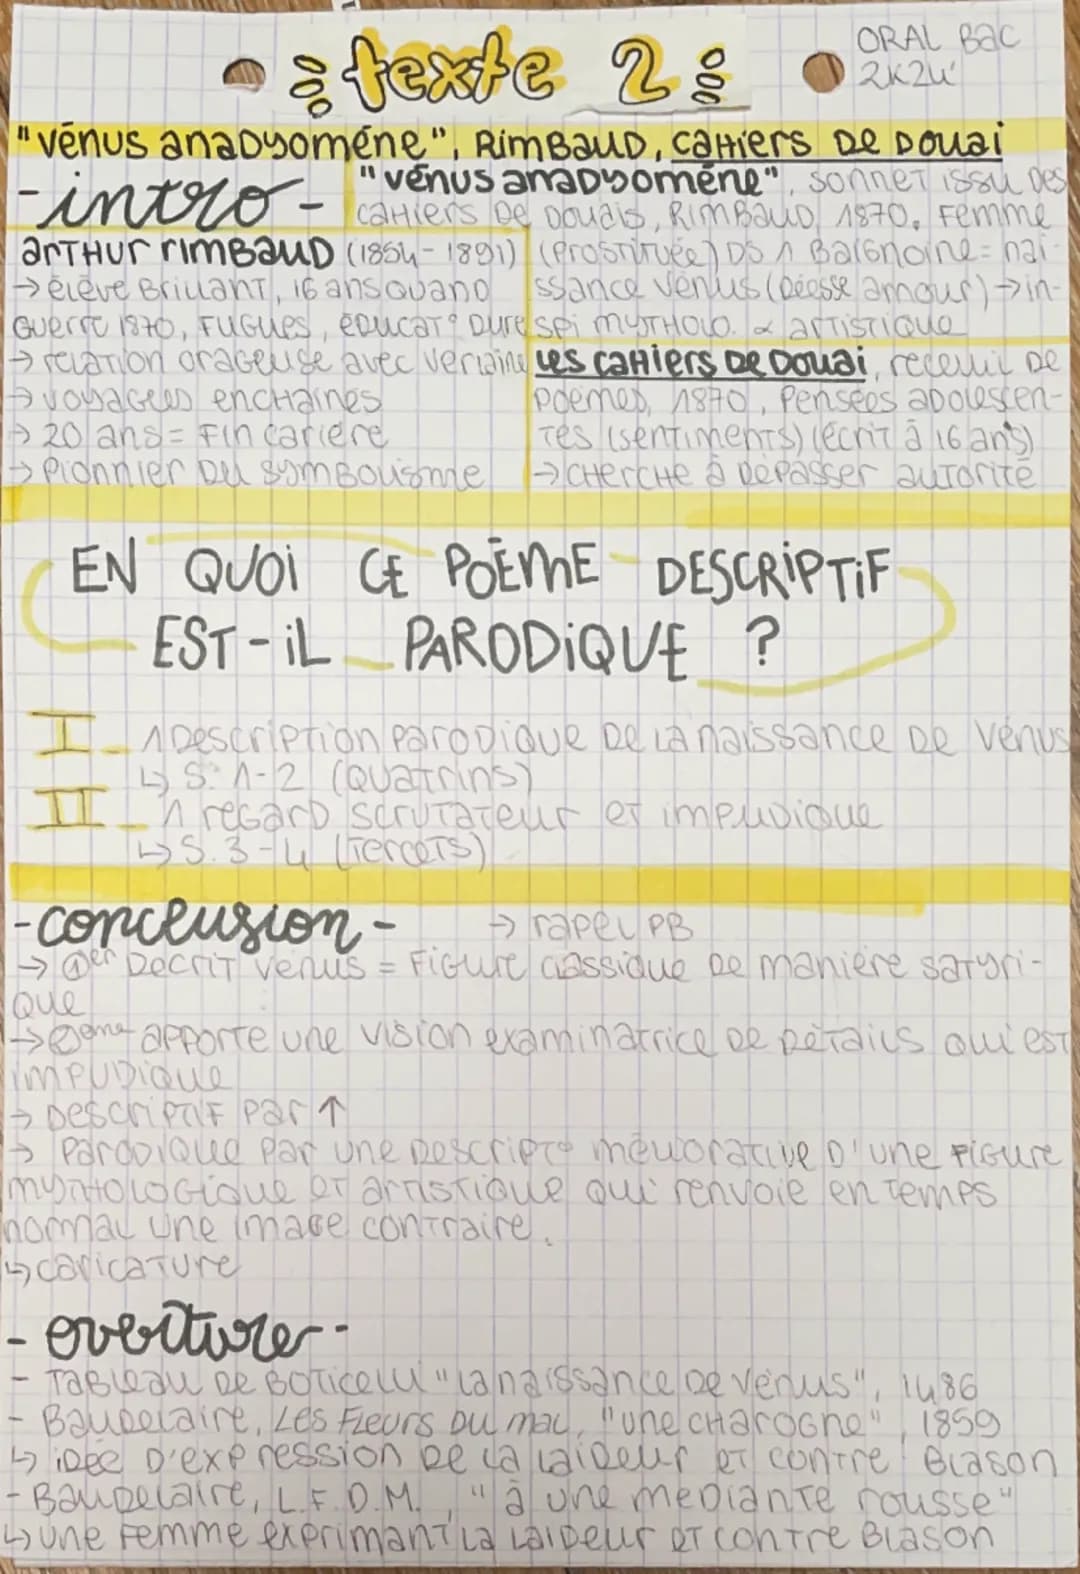 texte 2
ORAL Bac
2K24
"vénus anadyoméne", RimBaud, cahiers De Douai
-intro-
"vénus anadyoméne", sonnet issu Des
cahiers De Douais, RimBaud, 1870. Femme
(prostituée) Ds 1 Baignoire = nai-
ssance vénus (Déesse amour) → in-
spi mytholo. & artistique
arthur rimBaud (1854-1891)
→ élève Brillant, 16 ans quand
Guerre 1870, Fugues, éducat° Dure
→ relation orageuse avec verlaine
→ voyages enchainés
→ 20 ans = Fin cariere
→ Pionnier Du symbolisme
Les cahiers De Douai, receuil De
poèmes, 1870, Pensées adolescen-
tes (sentiments) (écrit à 16 ans)
→ cherche à Dépasser autorité
EN QUOI CE POÈME DESCRIPTIF
EST-iL PARODIQUE ?
I - 1 Description parodique De la naissance De vénus
↳ S. 1-2 (Quatrins)
II - 1 regard scrutateur et impudique
↳ S. 3-4 (Tercets)
-conclusion-
→ rapel PB
→ 1er Décrit vénus = Figure classique De manière satyri-
que
→ 2ème apporte une vision examinatrice De Détails qui est
impudique
→ Descriptif par ↑
→ Parodique par une Descript° méliorative D'une Figure
mythologique et artistique qui renvoie en temps
normal une image contraire.
↳ caricature
- overture -
- Tableau De Boticelli "la naissance De vénus", 1486
- Baudelaire, Les Fleurs Du mal, "une charogne", 1859
↳ idée D'expression De la laideur et contre Blason
- Baudelaire, L.F.D.M., "à une mediante rousse"
↳ une femme exprimant la laideur et contre Blason